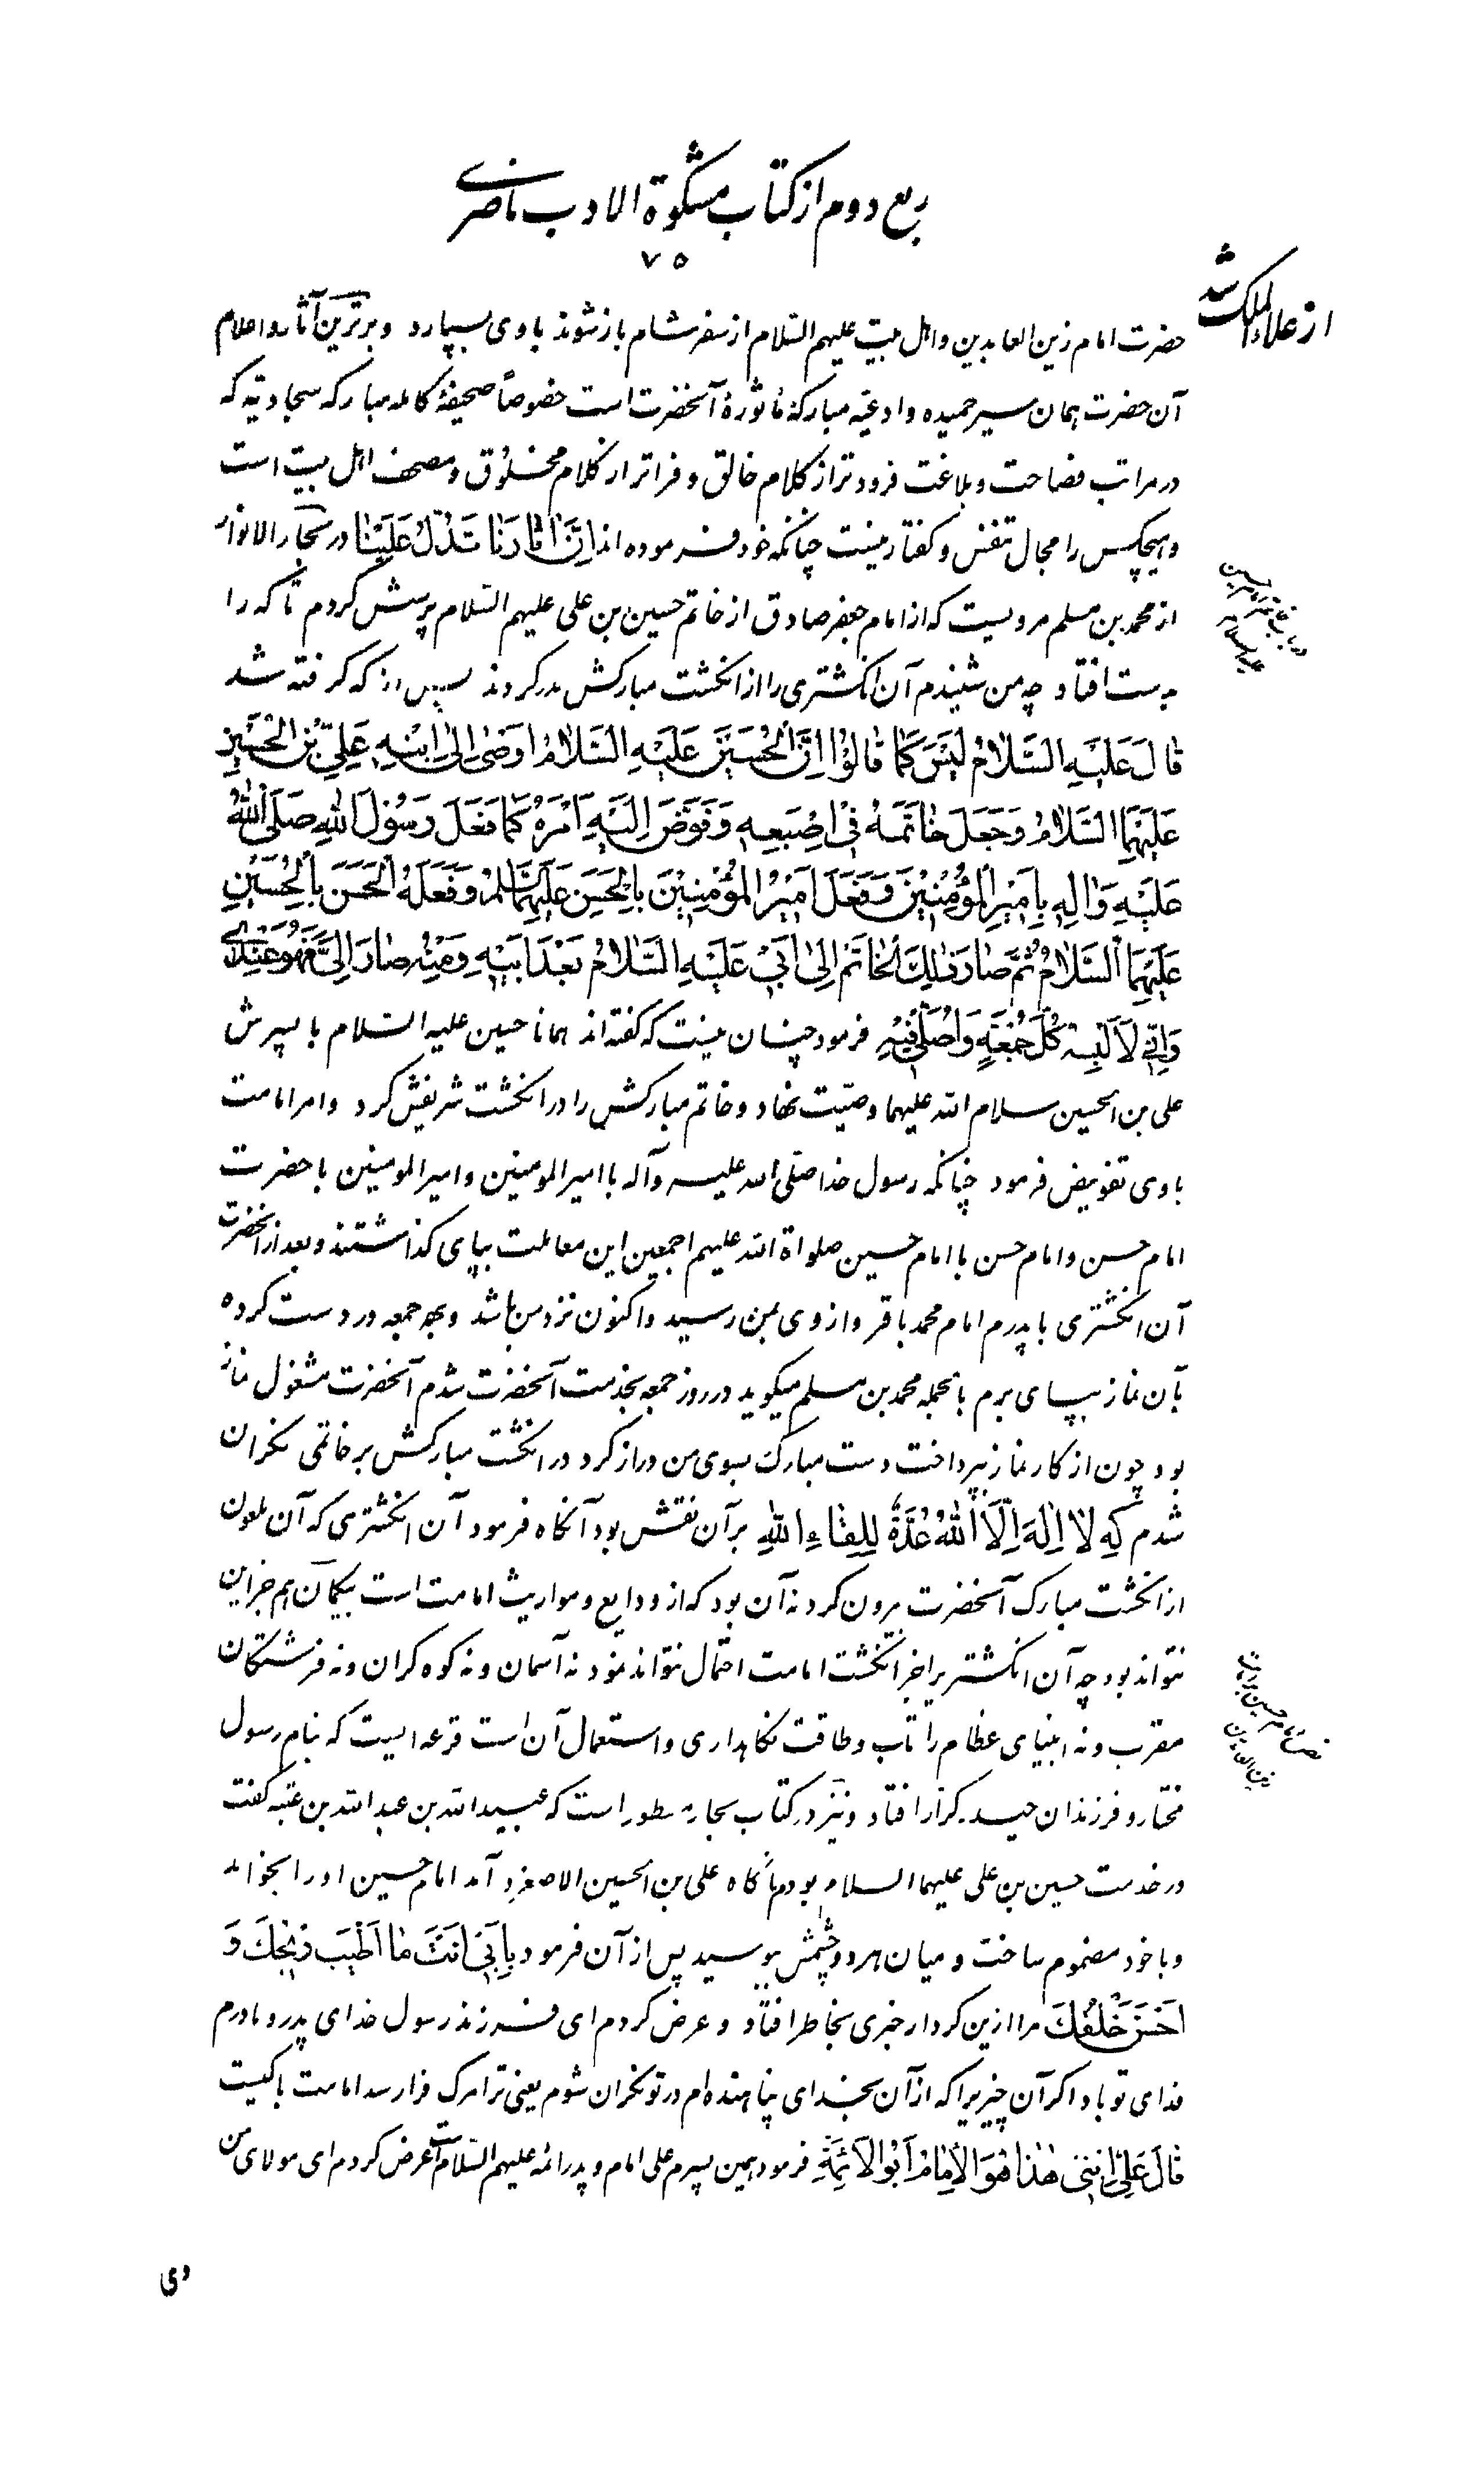 ربع دوم از کتاب مشکوة الادب ناصری
۷۵
از علاءالملک شد
حضرت امام زین العابدین و اهل بیت علیهم السّلام از سفر شام باز شوند باوی بسپارد و برترین آثار و اعلام
آن حضرت همان سیر حمیده و ادعیه مبارکهٔ مأثورهٔ آنحضرت است خصوصاً صحیفهٔ کامله مبارکه سجادیّه که
در مراتب فصاحت و بلاغت فرودتر از کلام خالق و فراتر از کلام مخلوق و مصحف اهل بیت است
و هیچکس را مجال تنفس و گفتار نیست چنانکه خود فرموده اند اِنَّ اٰثٰارَنٰا تَدُلُّ عَلَیْنٰا در بحار الانوار
از محمد بن مسلم مرویست که از امام جعفر صادق از خاتم حسین بن علی علیهم السّلام پرسش کردم تا که را
بدست افتاد چه من شنیدم آن انگشتری را از انگشت مبارکش بدر کردند پس از که گرفته شد
قٰالَ عَلَیْهِ السَّلٰامُ لَیْسَ کَمٰا قٰالُوْا اِنَّ الْحُسَیْنَ عَلَیْهِ السَّلٰامُ اَوْصٰی اِلیٰ اِبْنِهِ عَلِیِّ بْنِ الْحُسَیْنِ
عَلَیْهِمَا السَّلٰامُ وَجَعَلَ خٰاتَمَهُ فِیْ اِصْبَعِهِ وَفَوَّضَ اِلَیْهِ اَمْرَهُ کَمٰا فَعَلَ رَسُوْلُ اللّٰهِ صَلَّی اللّٰهُ
عَلَیْهِ وَاٰلِهِ بِاَمِیْرِ الْمُؤْمِنِیْنَ وَفَعَلَ اَمِیْرُ الْمُؤْمِنِیْنَ بِالْحَسَنِ عَلَیْهِمَا السَّلٰامُ وَفَعَلَهُ الْحَسَنُ بِالْحُسَیْنِ
عَلَیْهِمَا السَّلٰامُ ثُمَّ صٰارَ ذٰلِکَ الْخٰاتَمُ اِلیٰ اَبِیْ عَلَیْهِ السَّلٰامُ بَعْدَ اَبِیْهِ وَمِنْهُ صٰارَ اِلَیَّ فَهُوَ عِنْدِیْ
وَاِنِّیْ لَاَلْبِسُهُ کُلَّ جُمُعَةٍ وَاُصَلِّیْ فِیْهِ فرمود چنان نیست که گفته اند همانا حسین علیه السّلام با پسرش
علی بن الحسین سلام الله علیهما وصیّت نهاد و خاتم مبارکش را در انگشت شریفش کرد و امر امامت
باوی تفویض فرمود چنانکه رسول خدا صلّی الله علیه و آله با امیرالمومنین و امیرالمومنین با حضرت
امام حسن و امام حسن با امام حسین صلواة الله علیهم اجمعین این معاملت بپای گذاشتند و بعد از آنحضرت
آن انگشتری با پدرم امام محمد باقر و از وی بمن رسید و اکنون نزد من باشد و بهر جمعه در دست کرده
بآن نماز بپای برم بالجمله محمد بن مسلم میگوید در روز جمعه بخدمت آنحضرت شدم آنحضرت مشغول نماز
بود چون از کار نماز بپرداخت دست مبارک بسوی من دراز کرد در انگشت مبارکش بر خاتمی نگران
شدم که لٰا اِلٰهَ اِلَّا اللّٰهُ عُدَّةٌ لِلِقٰاءِ اللّٰهِ بر آن نقش بود آنگاه فرمود آن انگشتری که آن ملعون
از انگشت مبارک آنحضرت بیرون کرد نه آن بود که از ودایع و مواریث امامت است بیگمان هم جز این
نتواند بود چه آن انگشتر را جز انگشت امامت احتمال نتواند نمود نه آسمان و نه کوه گران و نه فرشتگان
مقرب و نه انبیای عظام را تاب و طاقت نگاهداری و استعمال آن است قرعه ایست که بنام رسول
مختار و فرزندان حیدر کرّار افتاد و نیز در کتاب بحار مسطور است که عبیدالله بن عبدالله بن عتبه گفت
در خدمت حسین بن علی علیهما السلام بودم ناگاه علی بن الحسین الاصغر در آمد امام حسین او را بخواند
و با خود مضموم ساخت و میان هر دو چشمش ببوسید پس از آن فرمود بِاَبِیْ اَنْتَ مٰا اَطْیَبَ رِیْحَکَ وَ
اَحْسَنَ خُلْقَکَ مرا ازین کردار خبری بخاطر افتاد و عرض کردم ای فرزند رسول خدای پدر و مادرم
فدای تو باد اگر آن چیز را که از آن بخدای پناهنده ام در تو نگران شوم یعنی ترا مرگ فرا رسد امامت با کیست
قٰالَ عَلِیٌّ اِبْنِیْ هٰذٰا هُوَ الْاِمٰامُ اَبُو الْاَئِمَّةِ فرمود همین پسرم علی امام و پدر ائمه علیهم السّلام است عرض کردم ای مولای من
وی